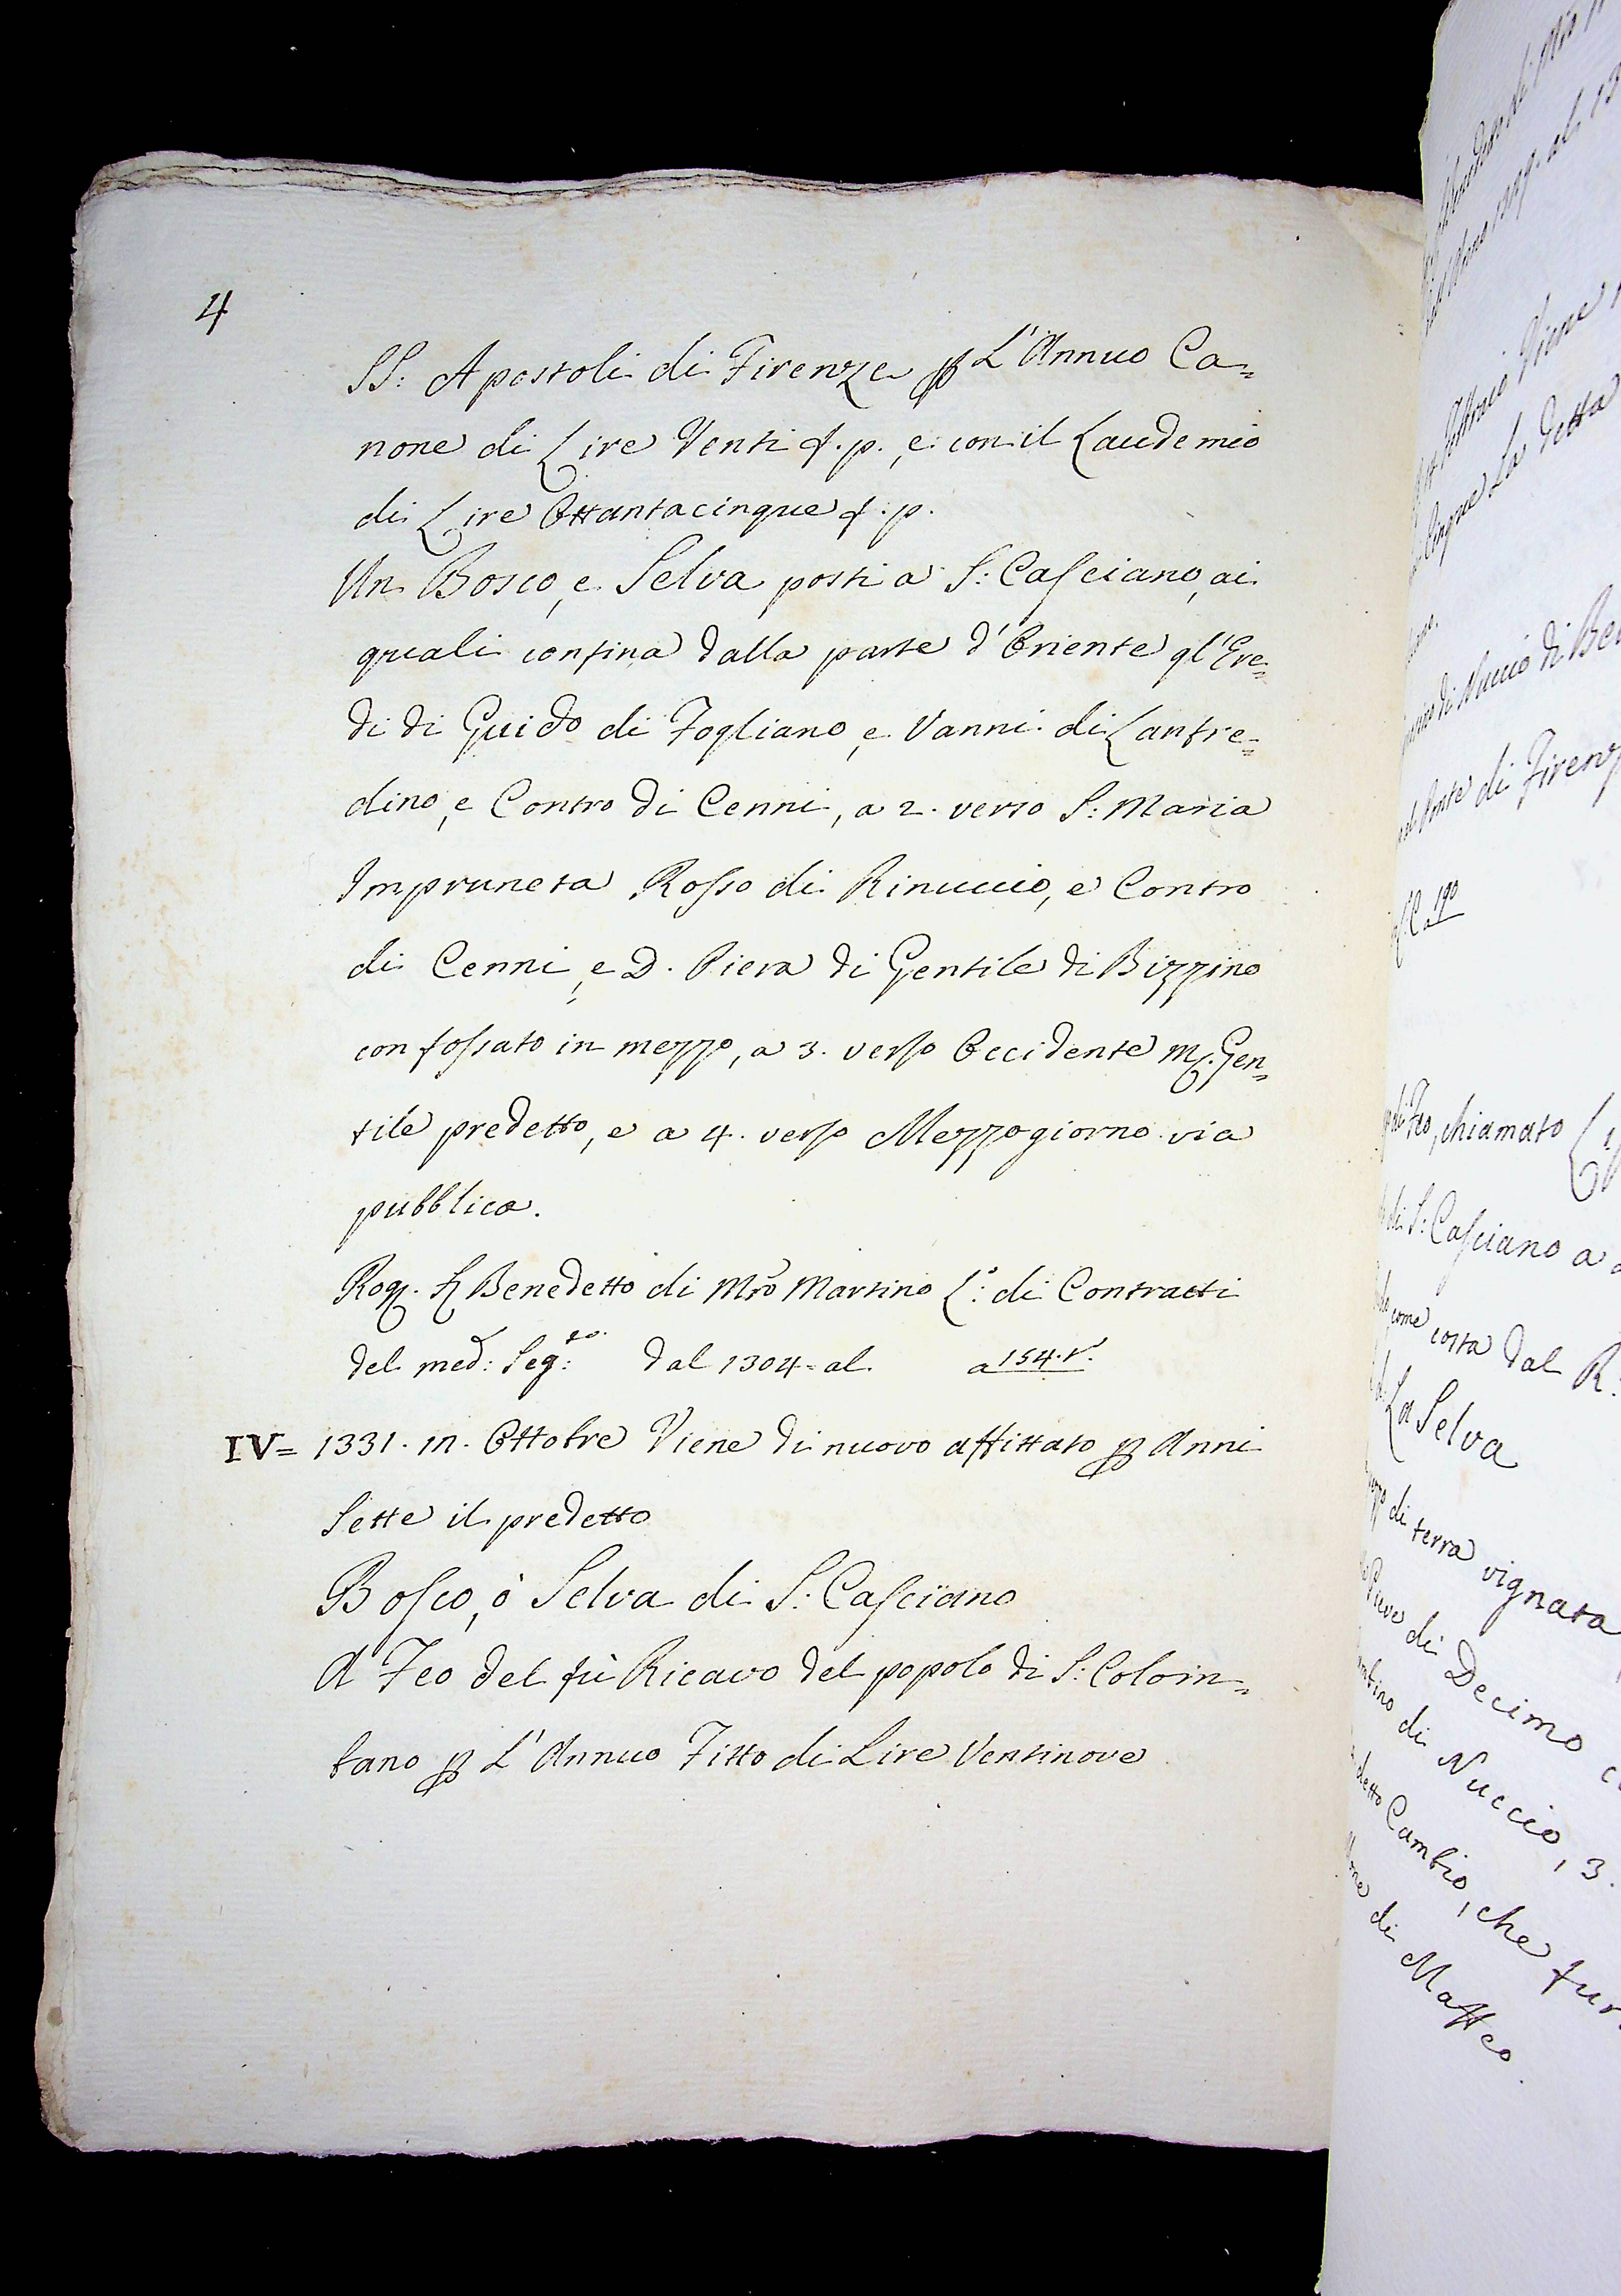 4
SS: Apostoli di Firenze p L'Annuo Ca=
none di Lire Venti f.p., e con il Laudemio
di Lire Ottantacinque f.p.
Un Bosco, e Selva posti a S: Casciano, ai
quali confina dalla parte d'Oriente gl'Ere=
di di Guido di Fogliano, e Vanni di Lanfre=
dino, e Contro di Cenni, a 2. verso S: Maria
Impruneta Rosso di Rinuccio, e Contro
di Cenni, e D. Piera di Gentile di Bizzino
con fossato in mezzo, a 3. verso Occidente Mr. Gen=
tile predetto, e a 4. verso Mezzogiorno via
pubblica.
Rog. Benedetto di Mro Martino L.º di Contratti
del med: Seg:to dal 1304 = al a 154.t.
IV = 1331. in Ottobre Viene di nuovo affittato p Anni
Sette il predetto
Bosco, ò Selva di S: Casciano
A Feo del fù Ricavo del popolo di S: Colom=
bano p L'Annuo Fitto di Lire Ventinove
di Nuccio di
di Firenz
190
Feo, chiamato
di S: Casciano a
come costa dal R.
La Selva
di terra vignata
Pieve di Decimo
di Nuccio, 3.
detto Cambio, che fur
di Matteo